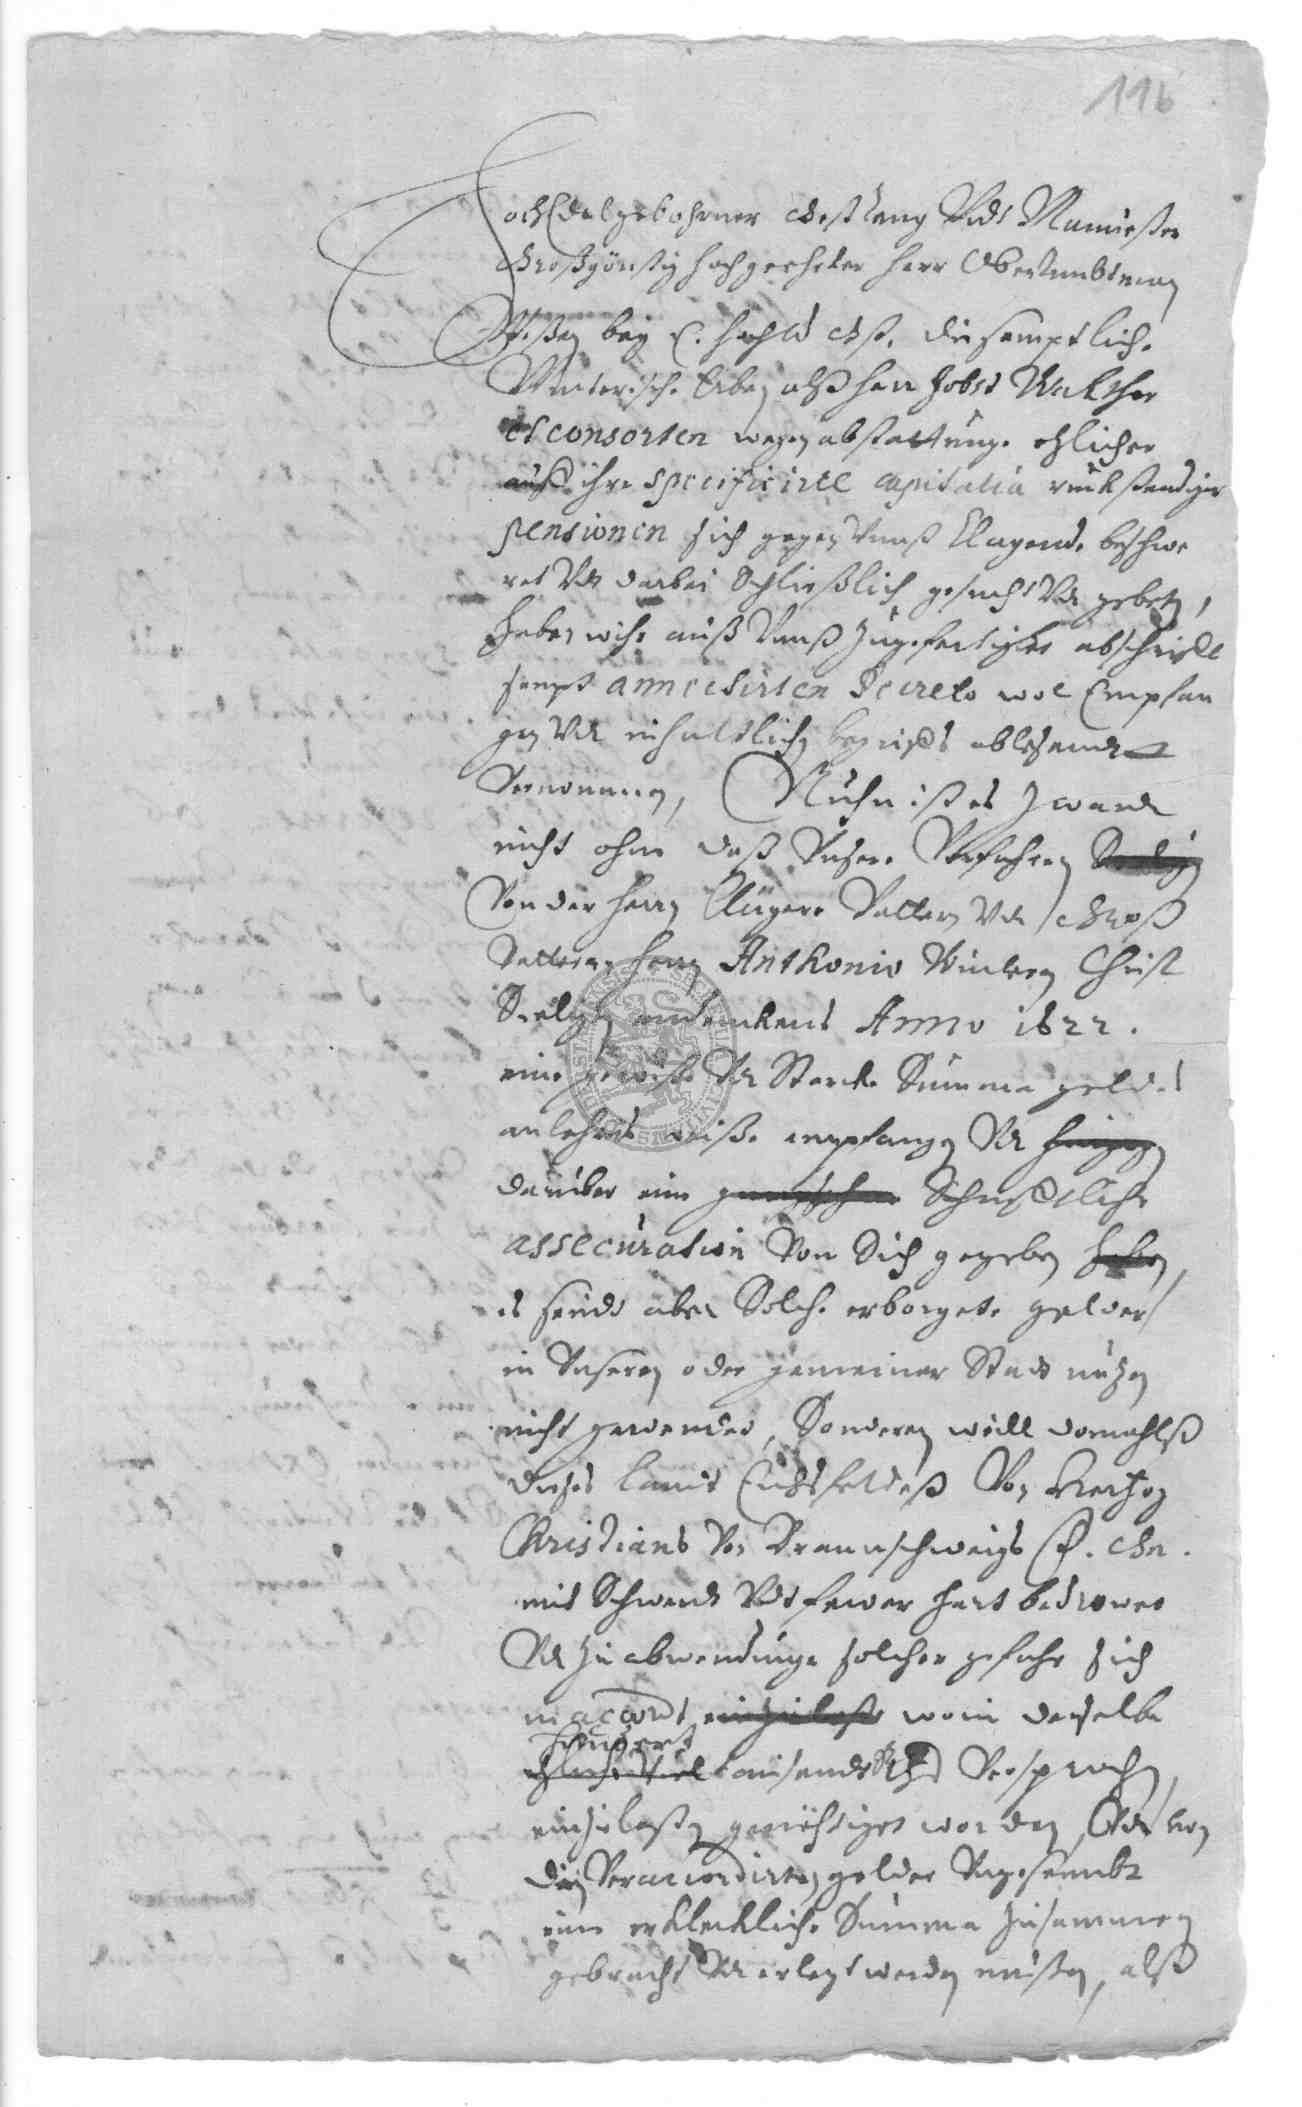 116
HochEdelgebohrner Gestreng Undt Manvester
Großgönstig hochgeehrter Herr OberAmbtman
Waßen bey E. HochEd Gest. die semptliche
Winterische Erben alß Herr Jobst Walther
et consorten wegen abstattunge etzlicher
auff ihre specificirte capitalia rückstendiger
pensionen sich gegen Unnß klagende beschwe
ret Undt darbei Schließlich gesucht Undt gebeten,
haben wihr auß Unnß zugefertigter abschrifft
sampt annectirten Decreto wol Empfan
gen Undt inhaltlichen begriffs ablesendt
Vernommen, Nuhn ist es zwardt
nicht ohne daß Unsere Vorfahren
Von der Herrn Klägere Vattern Undt Groß
Vattern Herrn Anthonio Wintern Christ
Seeligen andenckens Anno 1622.
eine gewiße Undt Starcke Summa geldes
anlehns weiße empfangen Undt
darüber eine Schrifftliche
assecuration Von Sich gegeben haben,
es seindt aber Solche erborgete gelder
in Unseren oder gemeiner Stadt nutzen
nicht gewendet, Sonderen weill domahlß
dieses Landt Eichsfeldeß Von Hertzog
Christians Von Braunschweigs F. Gn.
mit Schwerdt Undt fewer hart bedrowet
Undt zu abwendunge solcher gefahr sich
in accordt einzulaßen worin derselbe
hundert
tausendt Rthlr Versprochen,
einzulaßen genöhtiget worden, Undt von
den Veraccordirten geldern Ungeseumbt
eine erkleckliche Summa zusammen
gebracht Undt erlegt werden müßen, alß